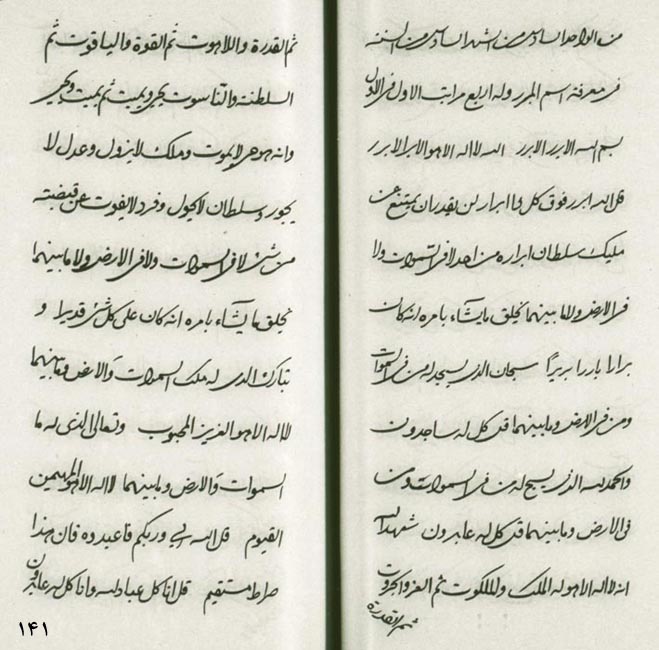 من الواحد السادس من الشهر السادس من السنة
فى معرفة اسم المبرر وله اربع مراتب الاول فى الاول
بسم الله الابرر الابرر الله لا اله الا هو الابرر الابرر
قل الله ابرر فوق كل ذا ابرار لن يقدر ان يمتنع عن
مليك سلطان ابراره من احد لا فى السموات ولا
فى الارض ولا ما بينهما يخلق ما يشاء بامره انه كان
برارا باررا بريرا سبحان الذى يسجد له من فى السموات
ومن فى الارض وما بينهما قل كل له ساجدون
والحمد لله الذى يسبح له من فى السموات ومن
فى الارض وما بينهما قل كل له عابدون شهد الله
انه لا اله الا هو له الملك والملكوت ثم العز والجبروت
ثم القدرة
ثم القدرة واللاهوت ثم القوة والياقوت ثم
السلطنة والناسوت يحيى ويميت ثم يميت ويحيى
وانه هو حى لا يموت وملك لا يزول وعدل لا
يجور وسلطان لا يحول وفرد لا يفوت عن قبضته
من شئ لا فى السموات ولا فى الارض ولا ما بينهما
يخلق ما يشاء بامره انه كان على كل شئ قديرا و
تبارك الذى له ملك السموات والارض وما بينهما
لا اله الا هو العزيز المحبوب وتعالى الذى له ما
السموات والارض وما بينهما لا اله الا هو المهيمن
القيوم قل الله ربى وربكم فاعبدوه فان هذا
صراط مستقيم قل انا كل عباد لله وانا كل له عابدون
١۴١